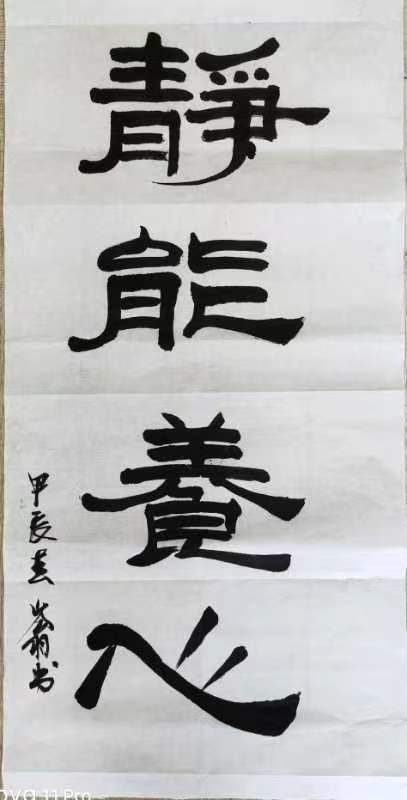 靜能養心
甲辰春 翁书
11 Pro